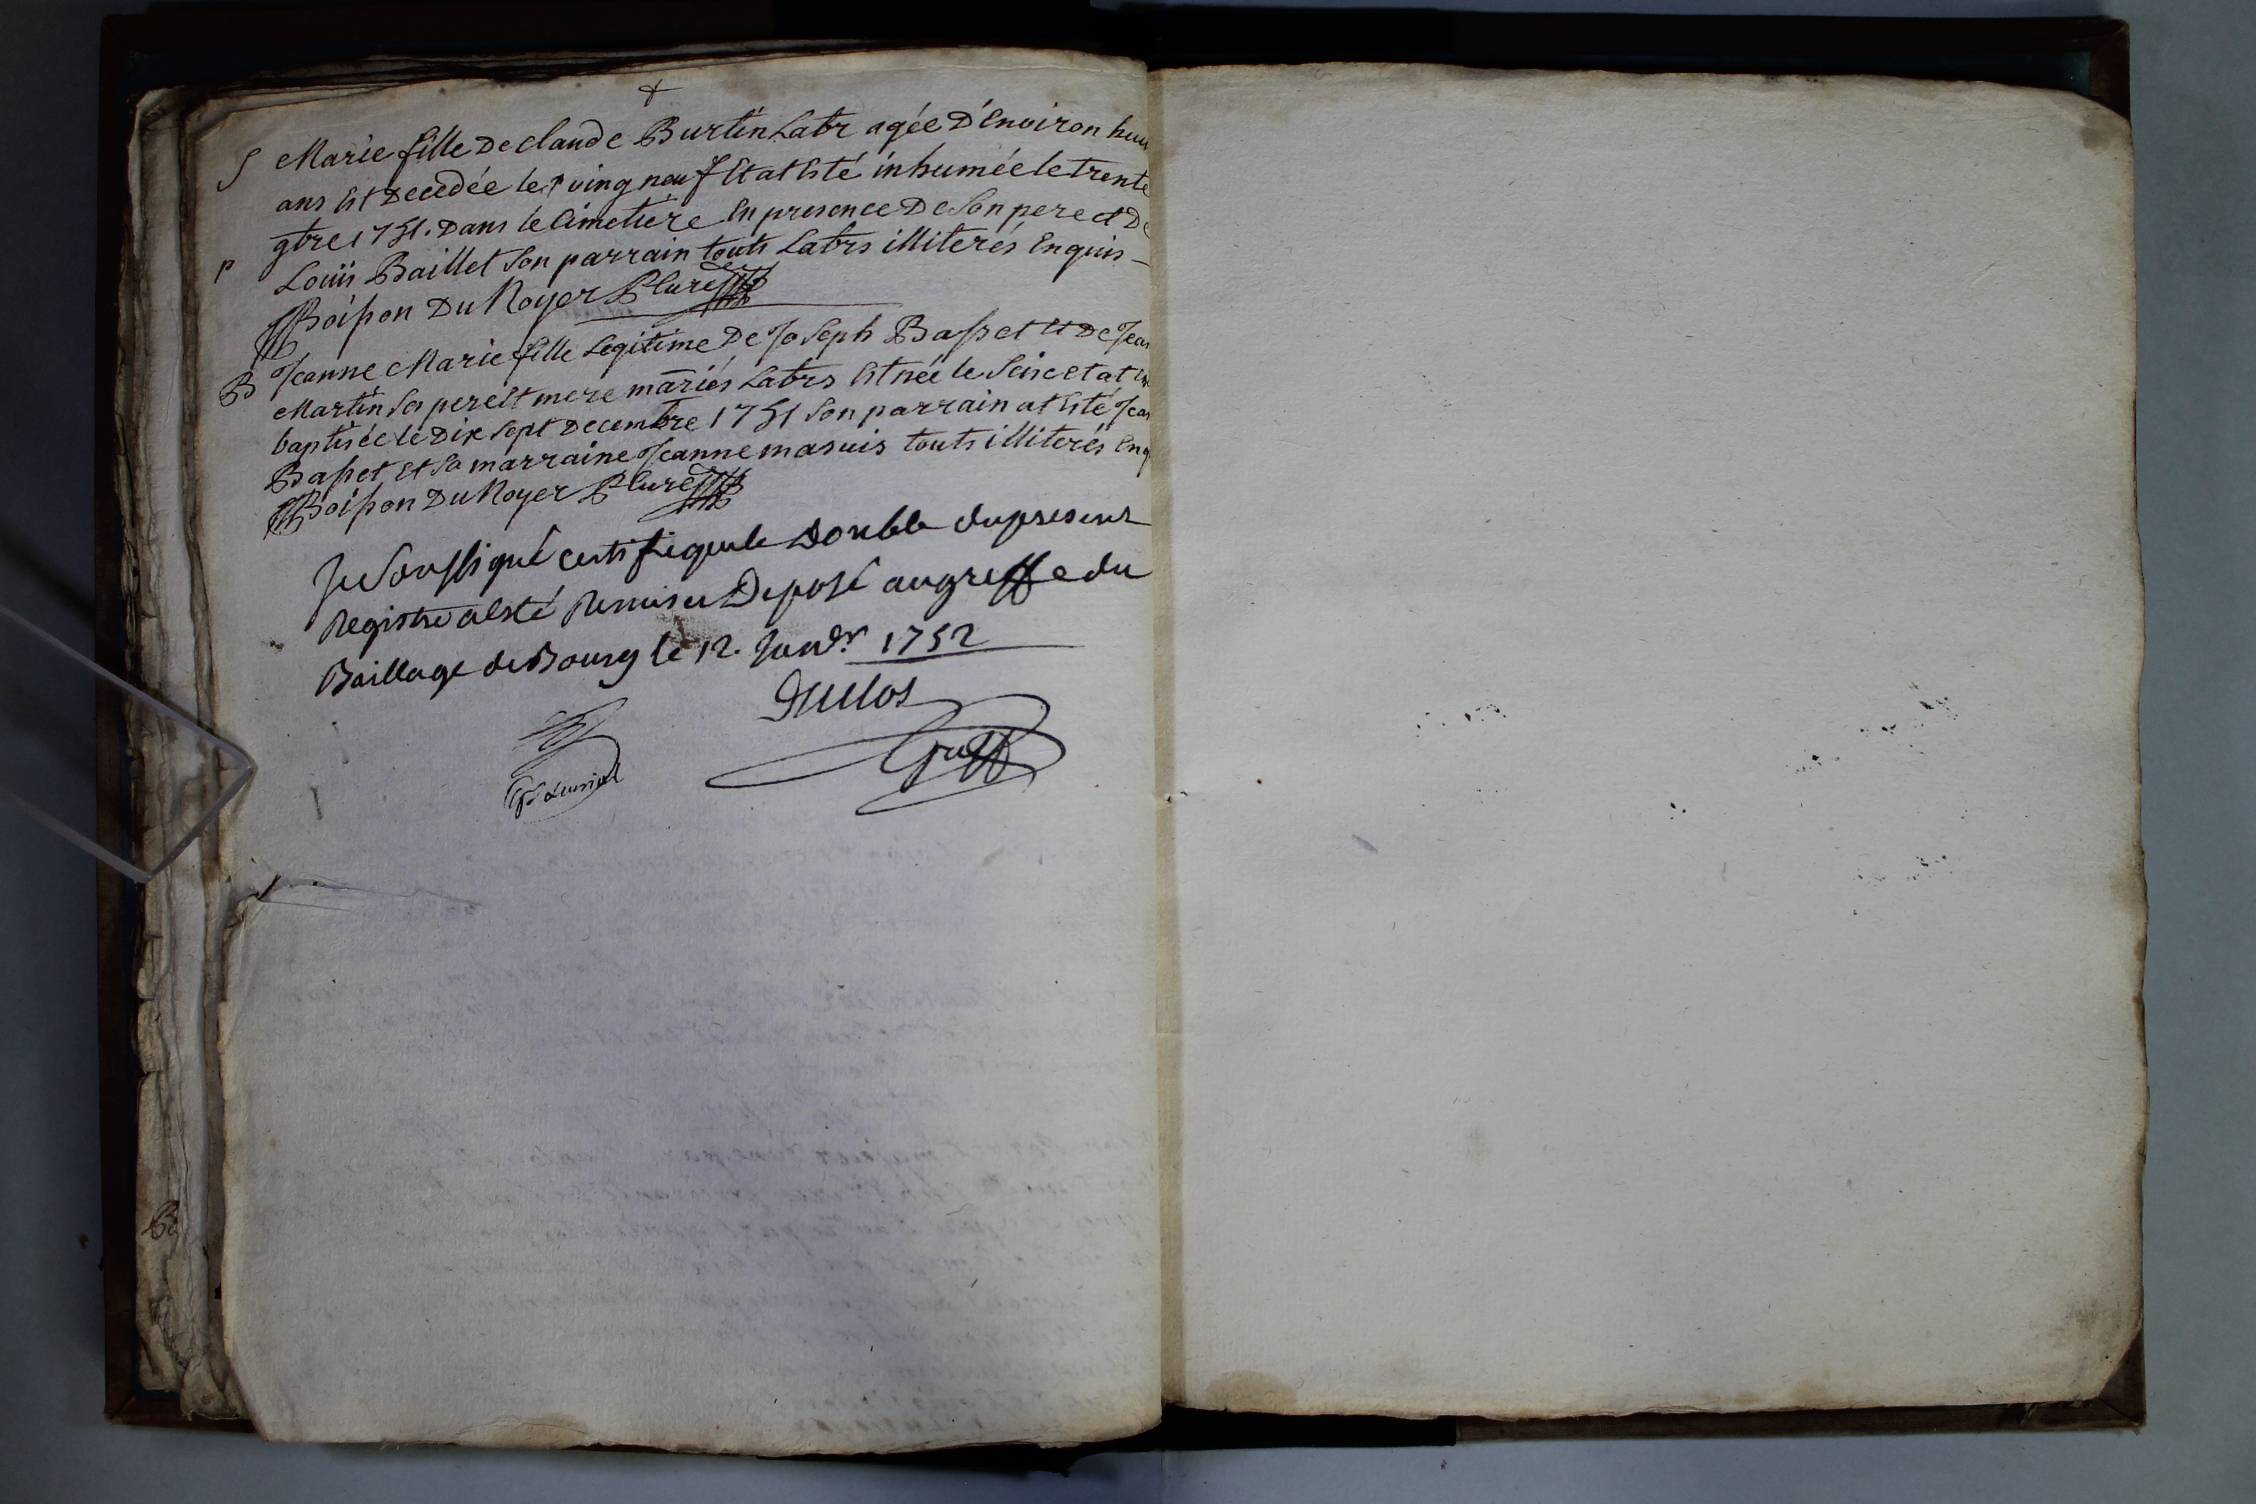 +
S Marie fille De claude Burtin Labr agée D'Environ huit
ans Est Decedée le ving neuf Et at Esté inhumée le trente
9bre 1751. Dans le Cimetière En presence De Son pere et De
P Louis Baillet Son parrain touts Labrs illiterés Enquis
Boisson Du Noyer P Curé
B Jeanne Marie fille Legitime De Joseph Basset Et De Jean
Martin Ses pere Et mere mariés Labrs Est née le Seise et at Esté
baptisée le Dix Sept Decembre 1751 Son parrain at Esté Jean
Basset Et Sa marraine Jeanne masuis touts illiterés Enq
Boisson Du Noyer P Curé
Je Soussigné certifie que le Double du present
Registre a esté Remis et Deposé au greffe du
Baillage de Bourg le 12. Janvr 1752
Duclos
Greff